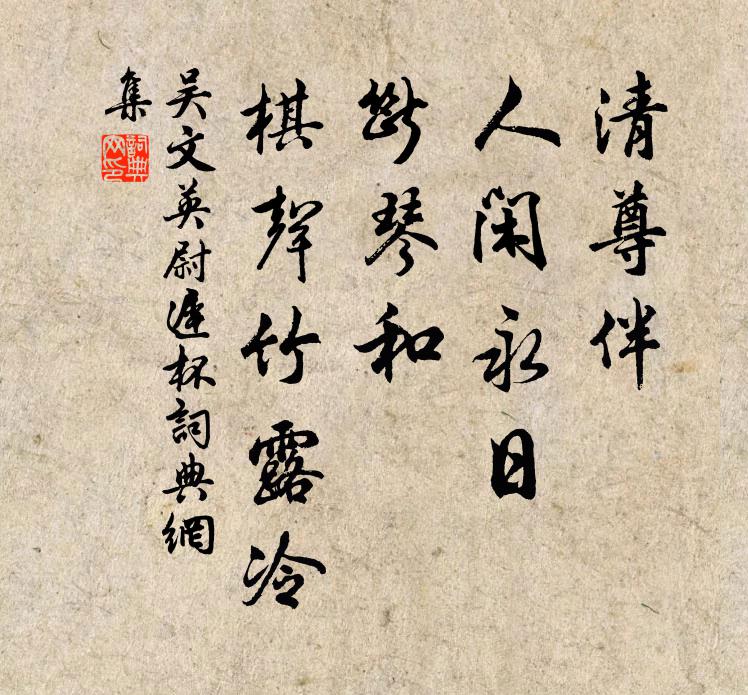 清尊伴
人閑永日
斷琴和
棋聲竹露冷
吳文英尉遲杯詞典網
集
詞典
网印